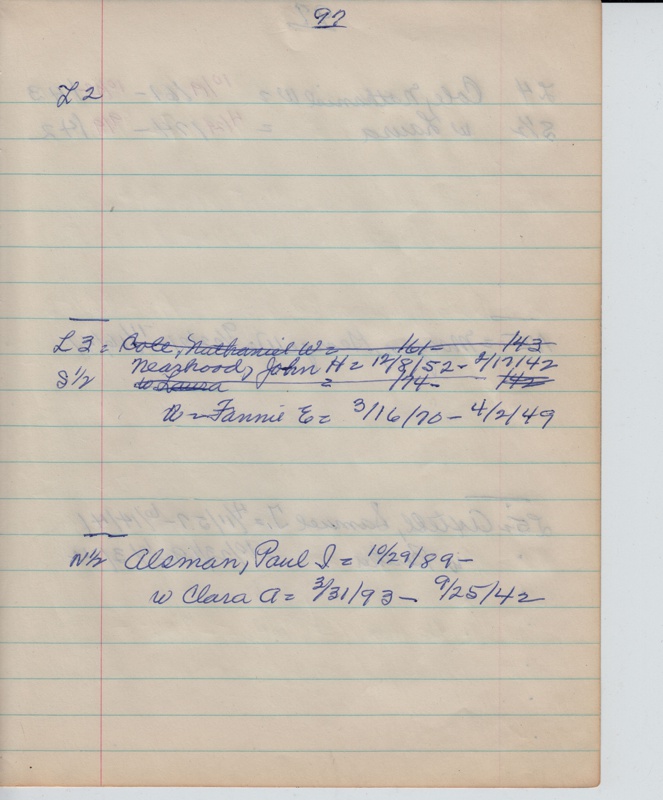 97
L 2
L 3 = Cole, Nathaniel W = '61 - '43
Neazhood, John H = 12/8/52 - 2/17/42
S 1/2 w Laura = '74 - '42
w - Fannie E = 3/16/70 - 4/2/49
N 1/2 Alsman, Paul I = 10/29/89 -
w Clara A = 3/31/93 - 9/25/42